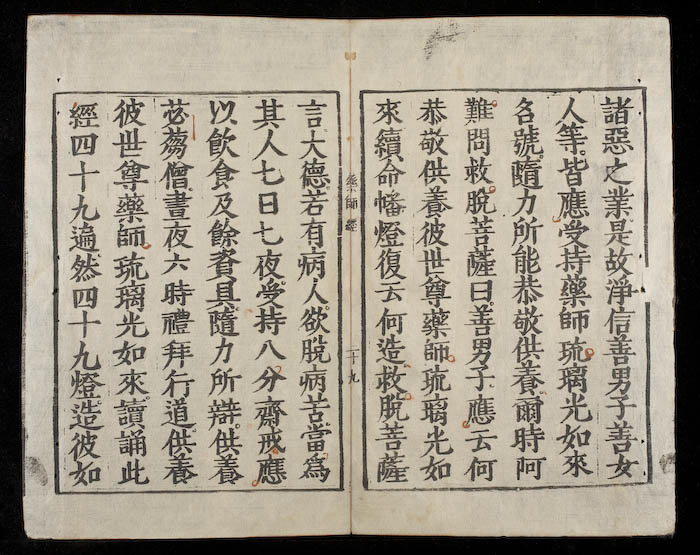 諸惡之業是故淨信善男子善女
人等皆應受持藥師琉璃光如來
名號隨力所能恭敬供養爾時阿
難問救脫菩薩曰善男子應云何
恭敬供養彼世尊藥師琉璃光如
來續命幡燈復云何造救脫菩薩
藥師經
二十九
言大德若有病人欲脫病苦當爲
其人七日七夜受持八分齋戒應
以飲食及餘資具隨力所辦供養
苾蒭僧晝夜六時禮拜行道供養
彼世尊藥師琉璃光如來讀誦此
經四十九遍然四十九燈造彼如